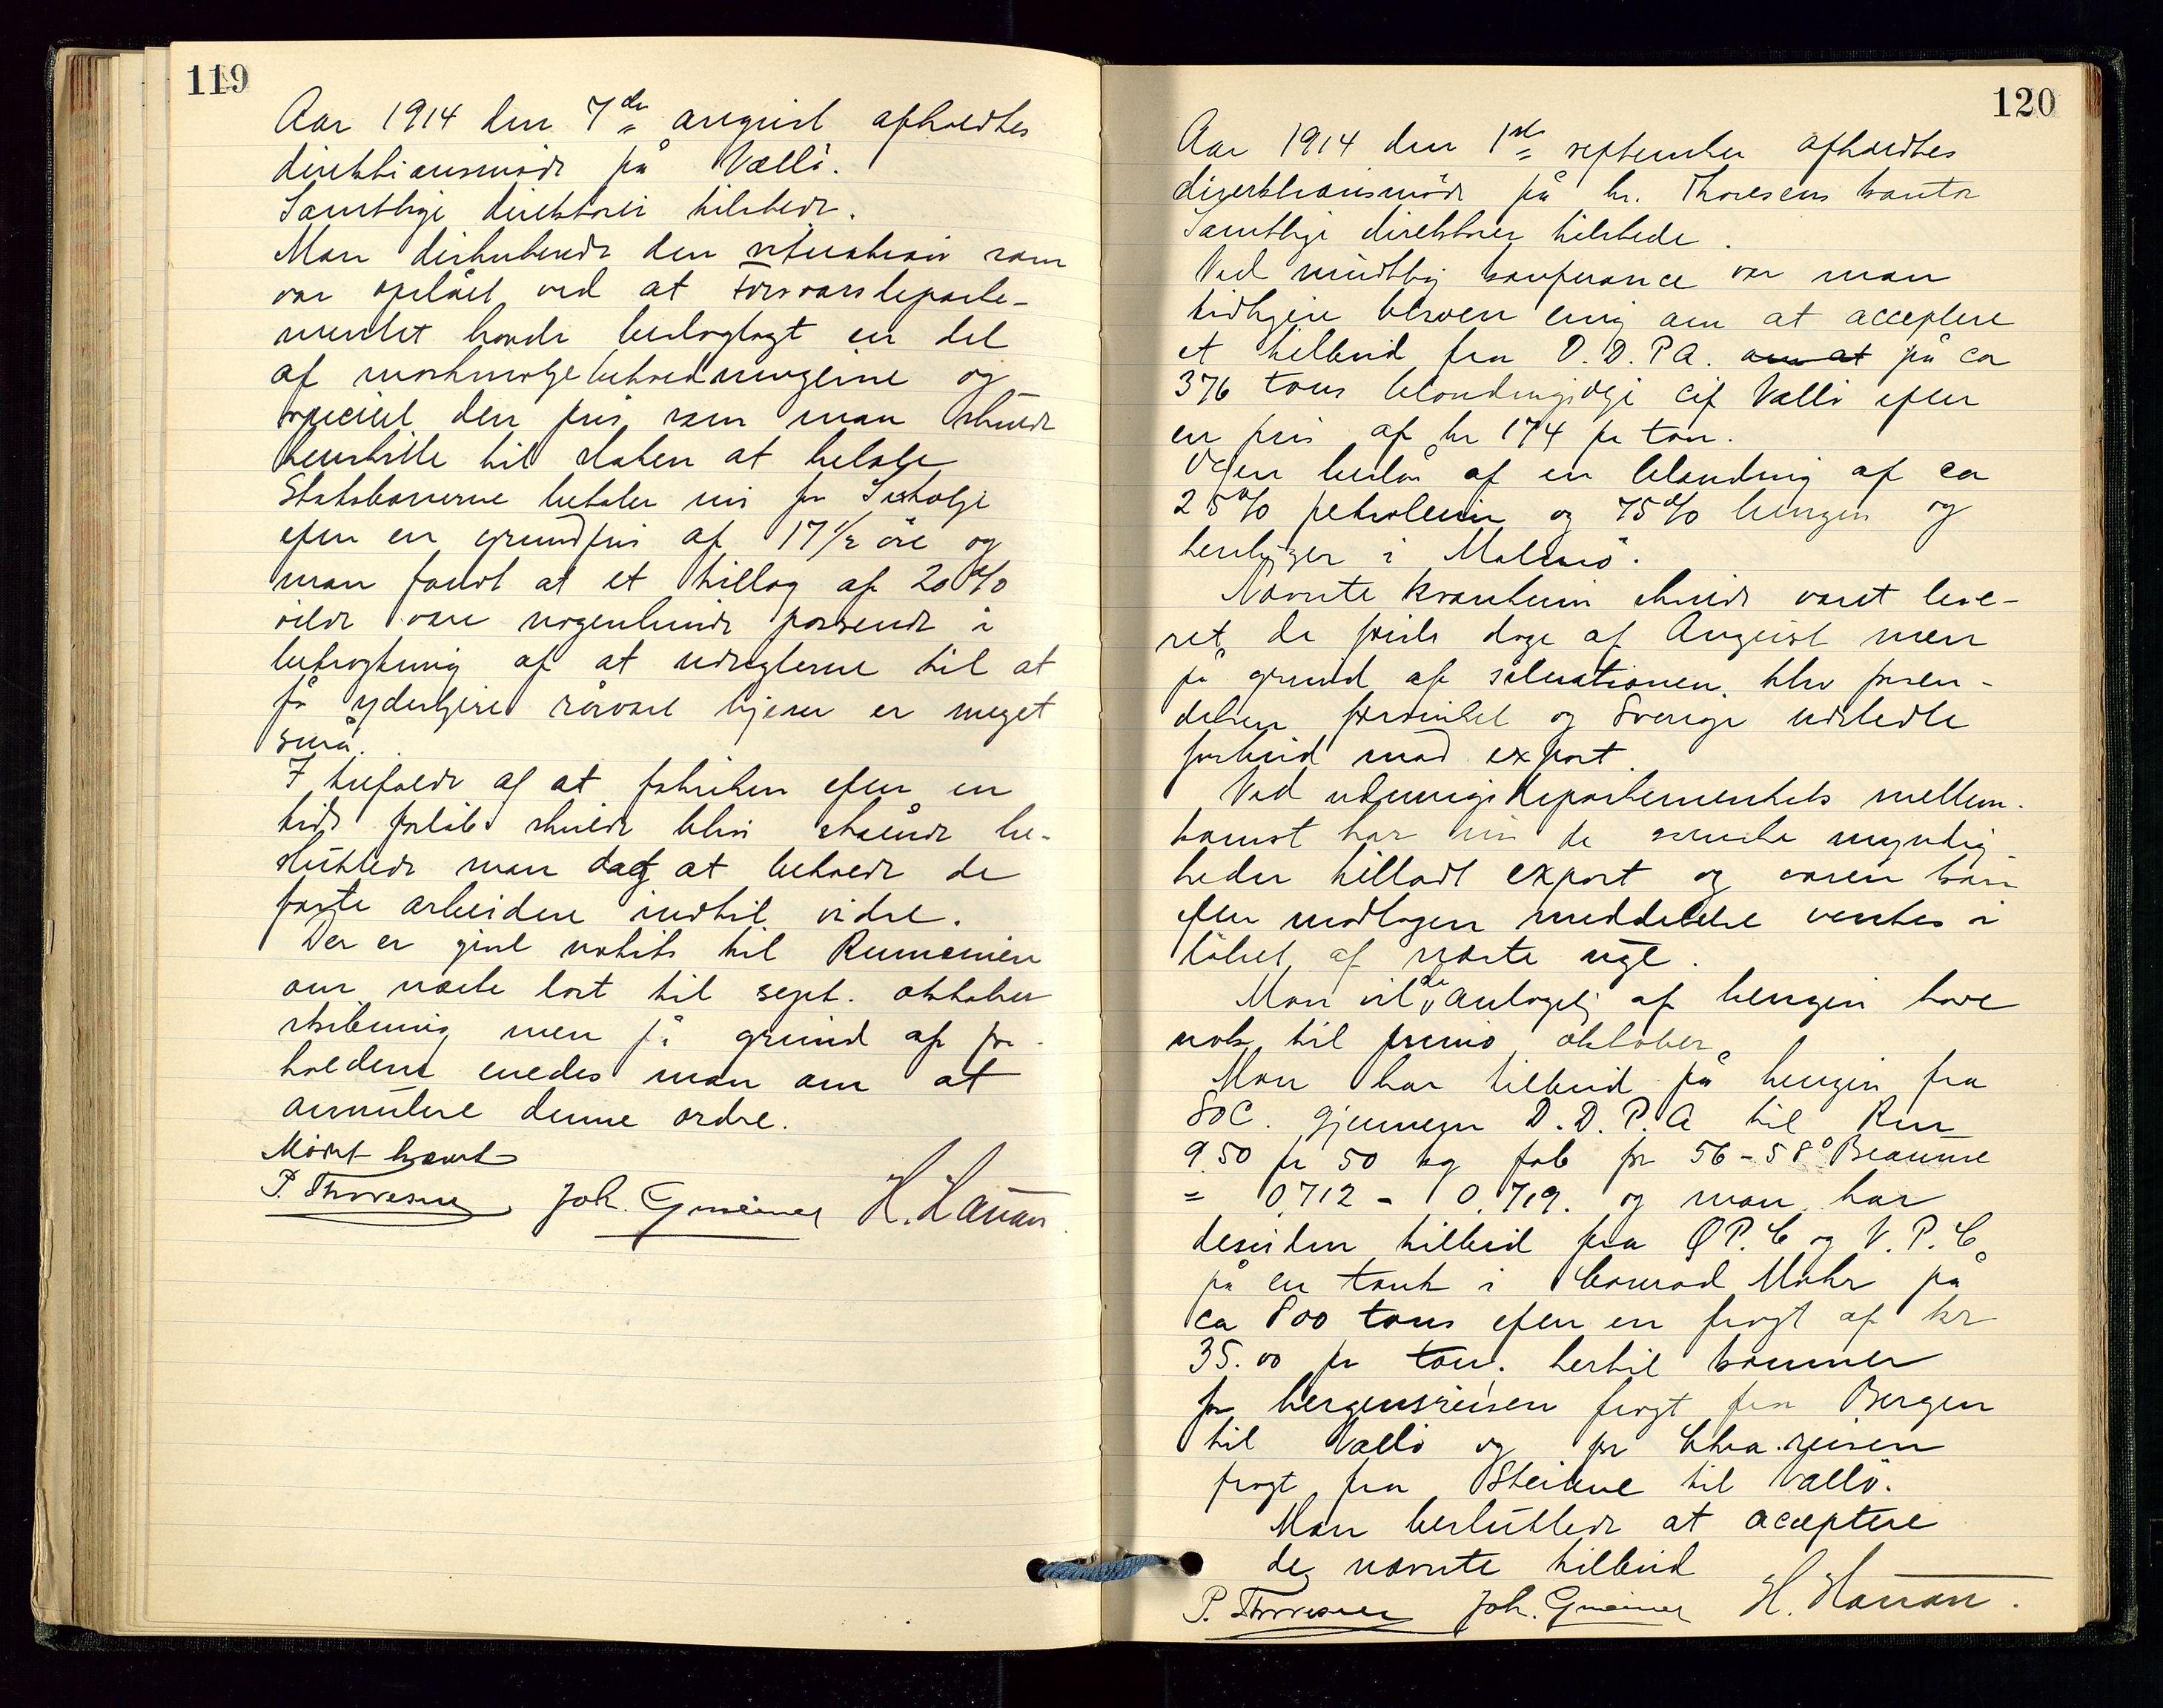 119
Aar 1914 den 7de august afholdtes
direktionsmöde på Vallö.
Samtlige direktörer tilstede.
Man diskuterede den situation som
var opstået ved at Forsvarsdeparte-
mentet havde beslaglagt en del
af maskinoljebeholdningerne og
specielt den pris som man skulde
henstille til staten at betale
Statsbanerne betaler nu for
efter en grundpris af 17 1/2 öre og
man fandt at et tillæg af 20 %
vilde være nogenlunde passende i
betragtning af at udsigterne til at
få yderligere råvare hjem er meget
små.
I tilfælde af at fabriken efter en
tids forløb skulde blive stående be-
sluttede man dog at beholde de
faste arbeidere indtil videre.
Der er givet notits til Rumænien
om næste last til sept. oktober
skibning men på grund af for-
holdene enedes man om at
annulere denne ordre.
Mödet hævet
P. Thoresen Joh. H. Hanan
120
Aar 1914 den 1ste september afholdtes
direktionsmöde på hr. Thoresens kontor
Samtlige direktörer tilstede.
Ved mündtlig konferance var man
tidligere bleven enig om at acceptere
et tilbud fra D. D. P A. om at på ca
376 tons blandingsolje cif Vallö efter
en pris af kr 174 pr ton.
Oljen består af en blanding af ca
25 % petroleum og 75 % bensin og
henligger i Malmö.
Nævnte kvantum skulde været leve-
ret de förste dage af August men
på grund af situationen blev forsen-
delsen forsinket og Sverige udstedte
forbud mod export.
Ved udenrigsdepartementets mellem-
komst har nu de svenske myndig-
heder tilladt export og varen kan
efter modtagen meddelelse ventes i
löbet af næste uge.
Man vil da antagelig af bensin have
nok til primo oktober.
Man har tilbud på bensin fra
SOC. gjennem D. D. P. A til Rm
9.50 pr 50 kg fob for 56 - 58° Beaume
= 0,712 - 0,719. og man har
desuden tilbud fra Ø P. C og V. P. C.
på en tank i Conrad Mohr på
ca 800 tons efter en fragt af kr
35.00 pr ton. hertil kommer
for bergensreisen fragt fra Bergen
til Vallö og for Chra. reisen
fragt fra Steilene til Vallö.
Man besluttede at acceptere
de nævnte tilbud
P. Thoresen Joh. H. Hanan.